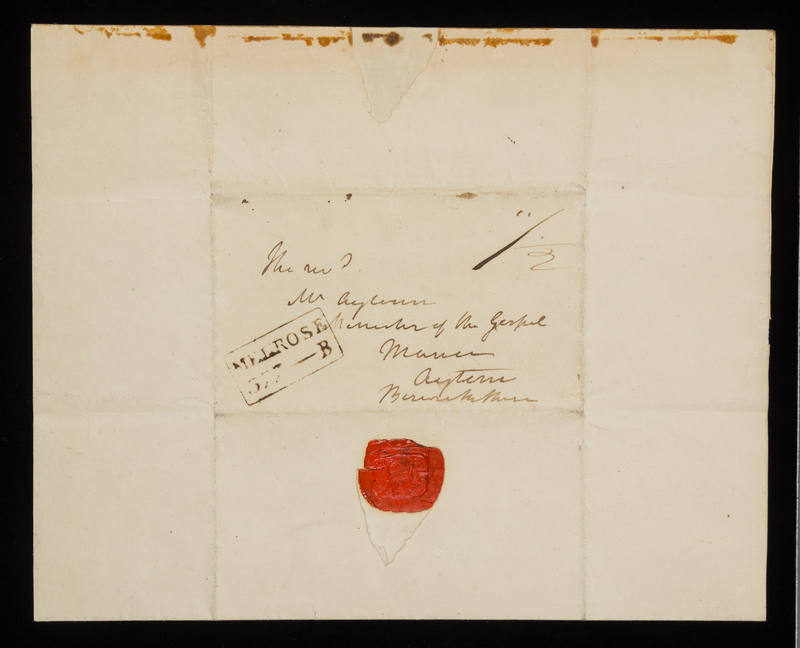 The revd.
Mr Aytoun
Minister of the Gospel
Manse
Ayton
Berwickshire
MELROSE
377 — B